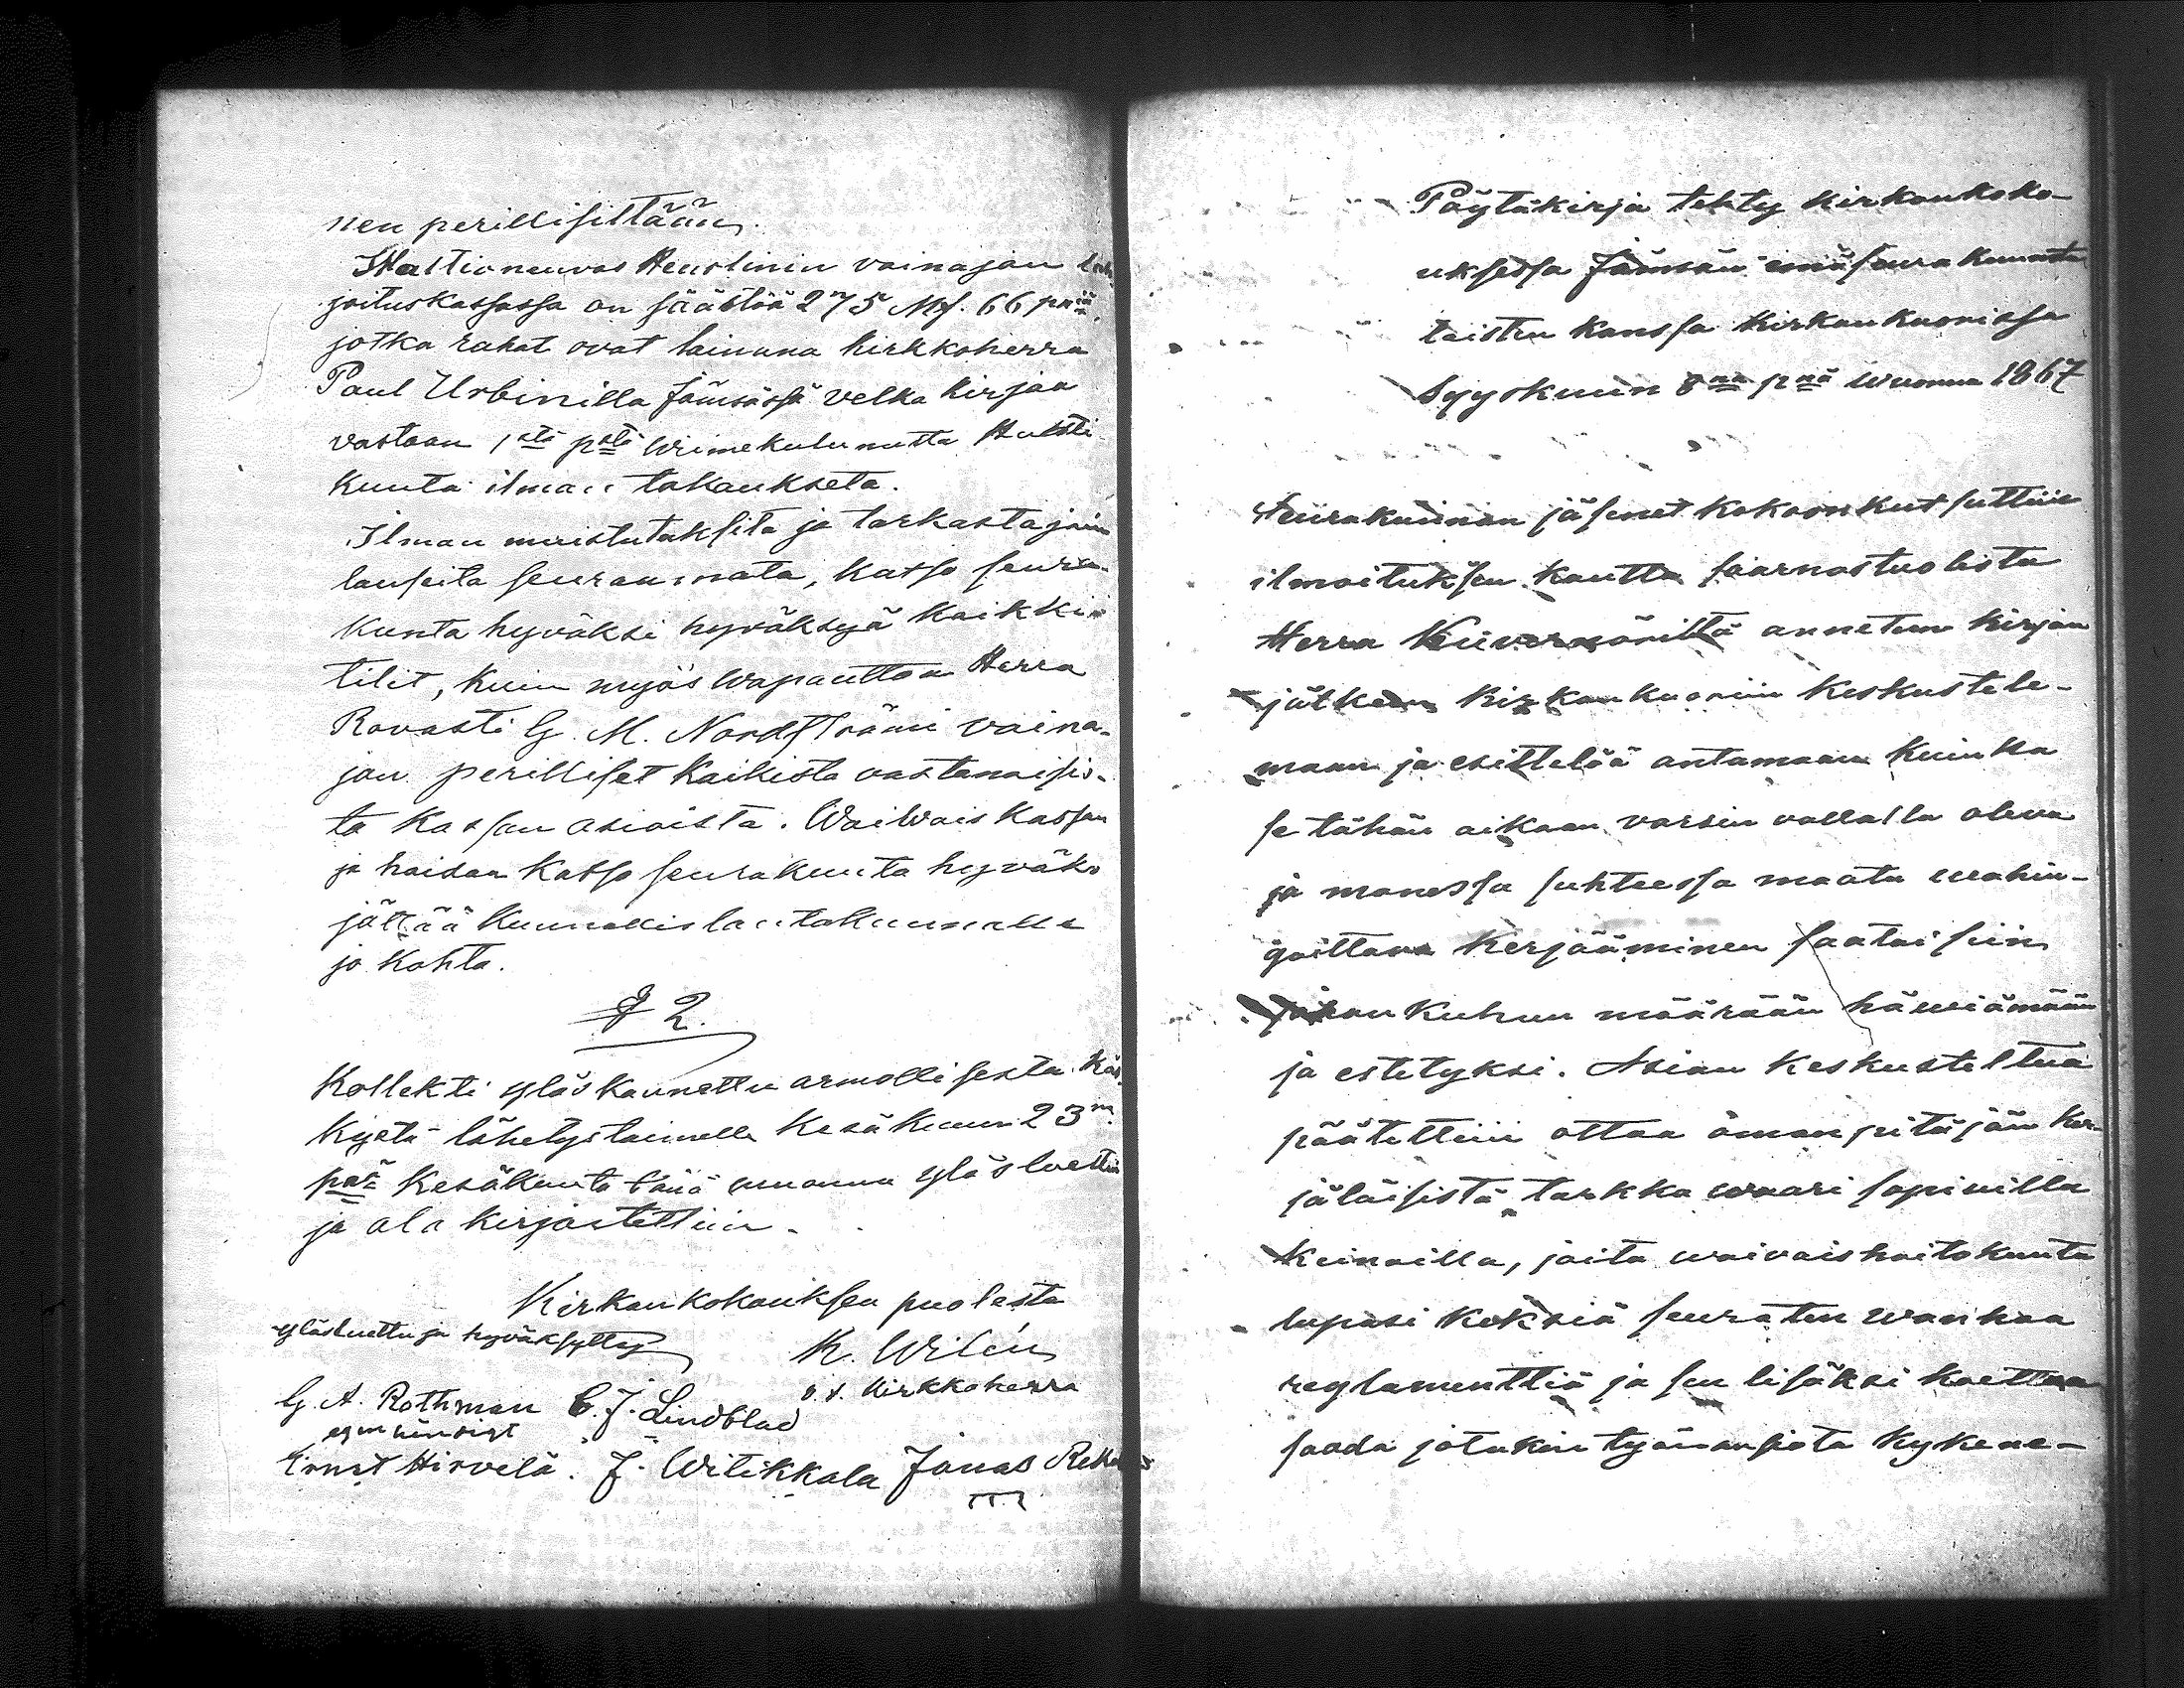 nen perillisiltään.
joituskassassa on säästöä 275 Mk. 66 pniä,
jotka rahat ovat lainana kirkkoherra
Paul Urbinilla Jämsässä velka kirjaa
vastaan 1stä pstä Wiimekulunutta Huhti
kuuta ilman takaukseta.
Ilman muistutuksita ja tarkastajain
lauseita seuraamata, katso seura-
kunta hyväksi hyväksyä kaikki
tilit, kuin myös wapauttaa Herra
Rovasti G. M. Nordströmi vaina-
jan perilliset kaikista vastanaisis-
ta kassan asioista. Waiwais kassan
ja hoidan katso seurakunta hyväks
jättää kunnallislautakunnalle
jo kohta.
§ 2.
Kollekti ylöskannettu armollisesta käs-
kystä lähetystoimelle Kesäkuun 23m
pnä Kesäkuuta tänä wuonna ylösluettiin
ja ala kirjoitettiin.
Kirkonkokouksen puolesta
ylösluettu ja hyväksytty
K. Wilén
v. t. kirkkoherra
G. A. Rothman C. J. Lindblad
Ernst Hirvelä. J. Witikkala Jonas
Pöytäkirja tehty kirkonkoko-
uksessa Jämsän emäseurakunnta
laisten kanssa kirkonkuorissa
Syyskuun 8na pnä wuonna 1867
Seurakunnan jäsenet kokoonkutsuttiin
ilmoituksen kautta saarnastuolista
Herra Kuvernöriltä annetun kirjan
jälkeen Kirkonkuoriin keskustele-
maan ja esittelöä antamaan kuinka
se tähän aikaan varsin vallalla oleva
ja monessa suhteessa maata wahin-
goittava kerjääminen saataisiin
johonkuhun määrään häwiämään
ja estetyksi. Asian keskusteltua
päätettiin ottaa oman pitäjän ker-
jäläisistä tarkka waari sopivilla
keinoilla, joita waivaishoitokunta
lupasi keksiä seuraten wanhaa
reglamenttiä ja sen lisäksi koettaa
saada jotakin työnansiota kykene-